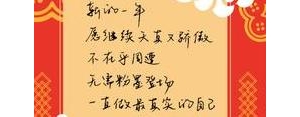 新的一年
愿继续天真又骄傲
不在乎周遭
无需粉墨登场
一直做最真实的自己